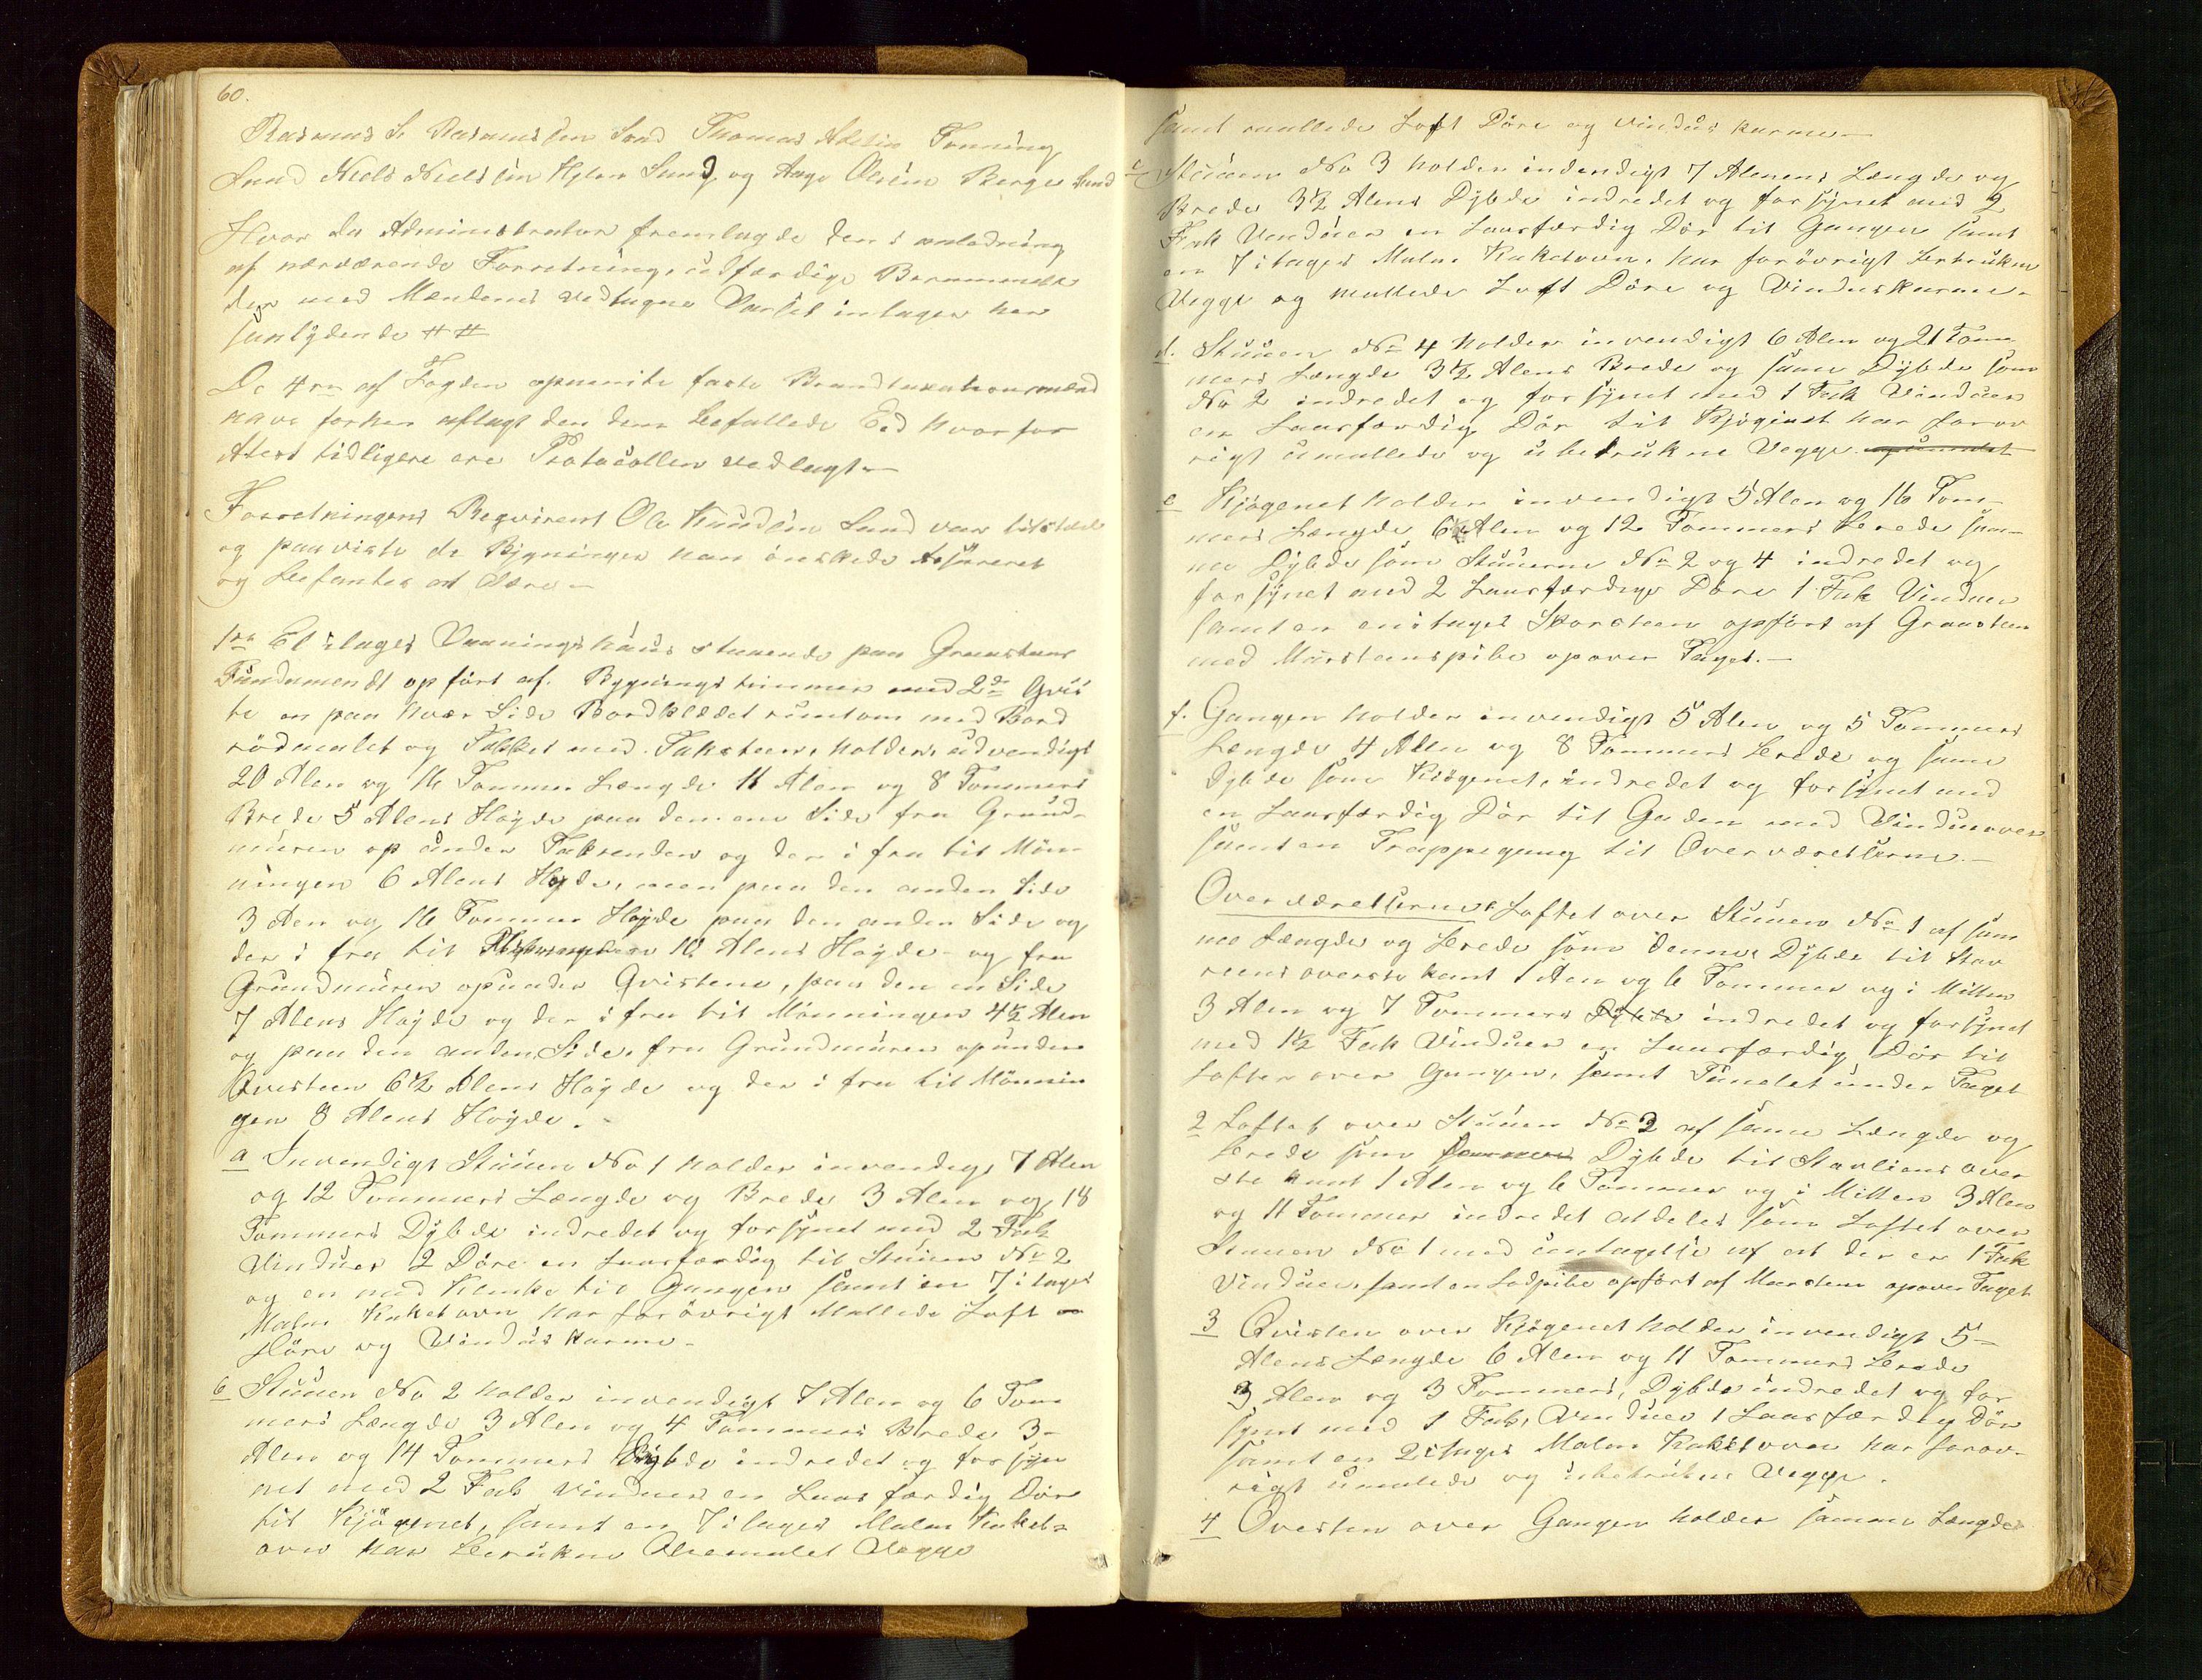 60.
Rasmus S. Rasmussen Sand Thomas Tonning
Sund Niels Nielsen Hylen Sund og Aage Olsen Berge Sund
Hvor da Administrator fremlagde den i anledning
af nærværende Forretning udfærdige Berammelse
der med Mændenes vedtagne Varsel intages her
saalydende ##
De 4re af Fogden opnævnte faste Brandtaxationsmænd
have forhen aflagt den dem befallede Eed hvorfor
Atest tidligere ere Protocollen vedlagt –
Forretningens Reqvirent Ole Knudsen Sund var tilstede
og paaviste de Bygninger han önskede Assureret
og befantes at være –
1ste Et 2 etages Vaaningshaus staaende paa Graasteens
Fundamendt opfört af Bygningstimmer med 2de Qvis
te en paa hvær Side Bordklædet rundtom med Bord
rödmalet og Tækket med Taksteen, holder udvendigt
20 Alen og 16 Tommer Længde 11 Alen og 8 Tommers
Brede 5 Alens Höyde paa den ene Side fra Grund-
muren op under Takrenden og der i fra til Mön-
ningen 6 Alens Höyde, men paa den anden Side
3 Alen og 16 Tommer Höyde paa den anden Side og
der i fra til 10 Alens Höyde – og fra
Grundmuren opunder Qvistene, paa den en Side
7 Alens Höyde og der i fra til Mönningen 4½ Alen
og paa den anden Side, fra Grundmuren opunder
Qvisteen 6½ Alens Höyde og der i fra til Mönnin
gen 8 Alens Höyde. –
a Invendigt Stuuen No 1 holder invendigt 7 Alen
og 12 Tommers Længde og Brede 3 Alen og 18
Tommers Dybde indredet og forsynet med 2 Fak
Vinduer 2 Döre en Laasfærdig til Stuuen No 2
og en med Klinke til Gangen samt en 7 i tages
Malm Kakelovn har forövrigt Mallede Loft
Döre og Vindus karme –
b Stuuen No 2 holder invendigt 7 Alen og 6 Tom
mers Længde 3 Alen og 4 Tommers Brede 3 –
Alen og 14 Tommers Dybde indredet og forsyn
net med 2 Fak Vinduer en Laas færdig Dör
til Kjögenet, samt en 7 i tages Malm Kakel-
ovn har betrukne Vegge
samt mallede Loft Döre og vindus karme –
c Stuuen No 3 holder indvendigt 7 Alenens Længde og
Brede 3½ Alens Dybde indredet og forsynet med 2
Fak Vinduer en Laasfærdig Dör til Gangen samt
en 7 i tages Malm Kakelovn, har forövrigt betrukne
Vegge og mallede Loft Döre og Vinduskarme –
d. Stuuen No 4 holder invendigt 6 Alen og 21 Tom-
mers Længde 3½ Alens Brede og samme Dybde som
No 2 indredet og forsynet med 1 Fak Vinduer
en Laasfærdig Dör til Kjöginet har foröv
rigt umallede og ubetrukne Vegge
e Kjögenet holder invendigt 5 Alen og 16 Tom-
mers Længde 6 Alen og 12 Tommers brede sam-
me Dybde som Stuuerne No 2 og 4 indredet og
forsynet med 2 Laasfærdige Döre 1 Fak Vinduer
samt en enetages Skorsteen opfört af Graasteen
med Mursteenspibe opover Taget. –
f. Gangen holder invendigt 5 Alen og 5 Tommers
Længde 4 Alen og 8 Tommers brede og samme
Dybde som Kiögenet, indredet og forsynet med
en Laasfærdig Dör til Gaden med Vindu over
samt en Trappegang til Overværelserne. –
Overværelserne 1 Loftet over Stuuen No 1 af sam
me Længde og brede som denne, Dybde til Stav
reens överste kant 1 Alen og 6 Tommer og i Mitten
3 Alen og 7 Tommers Dybde indredet og forsynet
med 1½ Fak Vinduer en Laasfærdig Dör til
Loftet over Gangen, samt Panelet under Taget
2 Loftet over Stuuen No 2 af samme Længde og
brede som Dybde til Stavliens över
ste kant 1 Alen og 6 Tommer og i Mitten 3 Alen
og 11 Tommer indredet aldeles som Loftet over
Stuuen No 1 med untagelse af at der er 1 Fak
Vinduer, samt en Lodpibe opfört af Mursteen opover Taget
3 Qvisten over Kjögenet holder invendigt 5 –
Alens Længde 6 Alen og 11 Tommers brede
3 Alen og 3 Tommers, Dybde indredet og for
synet med 1 Fak, Vinduer 1 Laasfærdig Dör
samt en 2 etages Malm Kakelovn har foröv-
rigt umalede og ubetrukne Vegge.
4 Qvisten over Gangen holder samme Længde